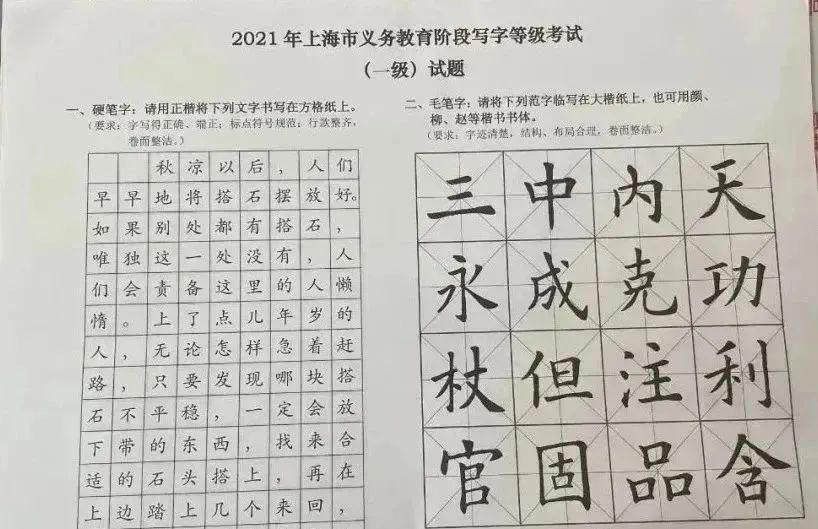 2021年上海市义务教育阶段写字等级考试
（一级）试题
一、硬笔字：请用正楷将下列文字书写在方格纸上。
（要求：字写得正确、端正；标点符号规范；行款整齐，
卷面整洁。）
秋凉以后，人们
早早地将搭石摆放好。
如果别处都有搭石，
唯独这一处没有，人
们会责备这里的人懒
惰。上了点儿年岁的
人，无论怎样急着赶
路，只要发现哪块搭
石不平稳，一定会放
下带的东西，找来合
适的石头搭上，再在
上边踏上几个来回，
二、毛笔字：请将下列范字临写在大楷纸上，也可用颜、
柳、赵等楷书书体。
（要求：字迹清楚，结构、布局合理，卷面整洁。）
三中内天
永成克功
杖但注利
官固品含